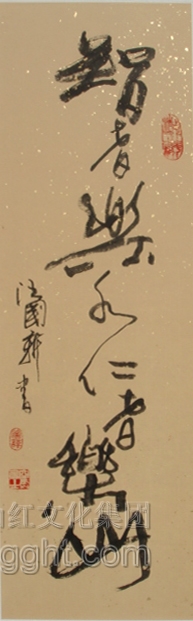 智者樂水仁者樂山
國軒書
红文化集团
ggght.com